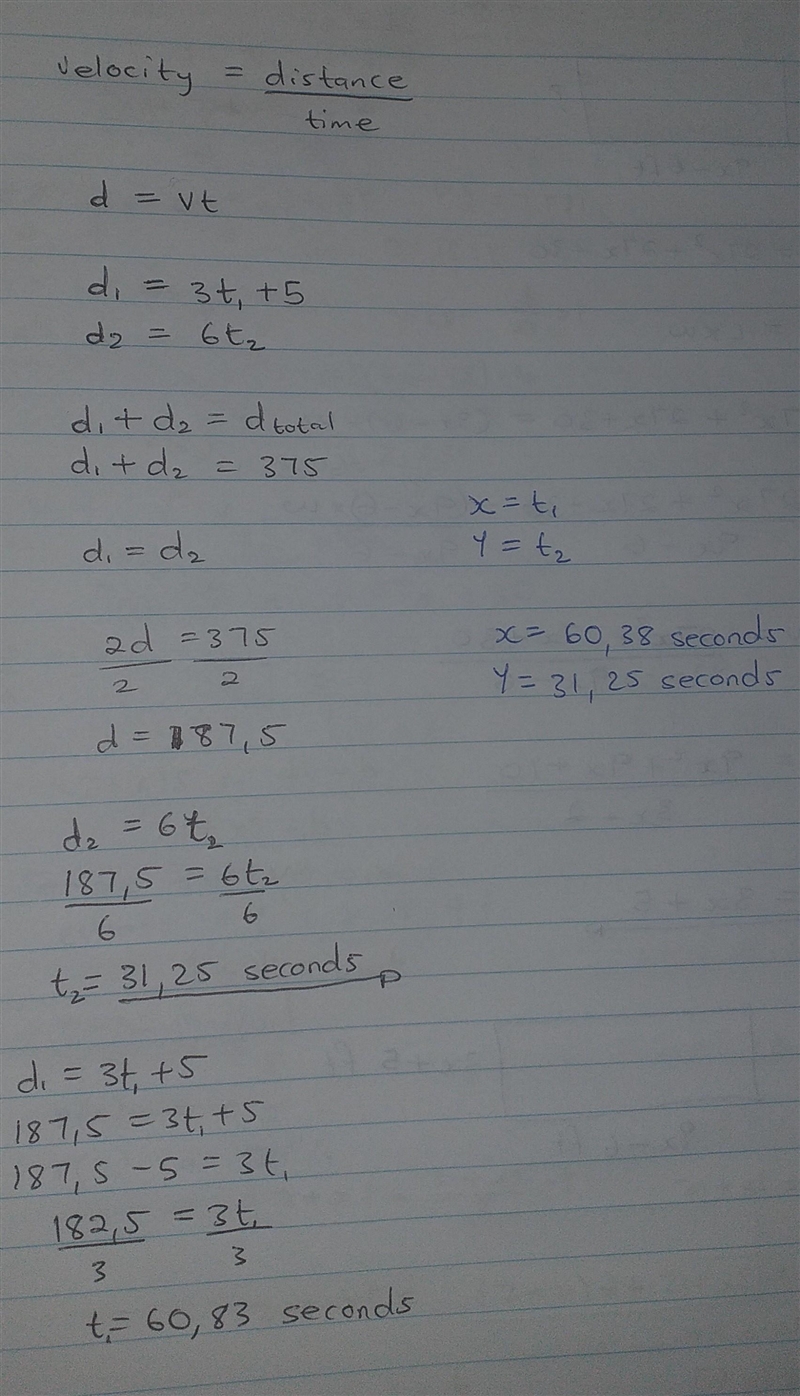 velocity = distance
time
d = vt
d₁ = 3t₁ + 5
d₂ = 6t₂
d₁ + d₂ = d total
d₁ + d₂ = 375
x = t₁
d₁ = d₂
Y = t₂
2d = 375
2 2
x = 60,38 seconds
Y = 31,25 seconds
d = 187,5
d₂ = 6t₂
187,5 = 6t₂
6 6
t₂ = 31,25 seconds
d₁ = 3t₁ + 5
187,5 = 3t₁ + 5
187,5 - 5 = 3t₁
182,5 = 3t₁
3 3
t₁ = 60,83 seconds